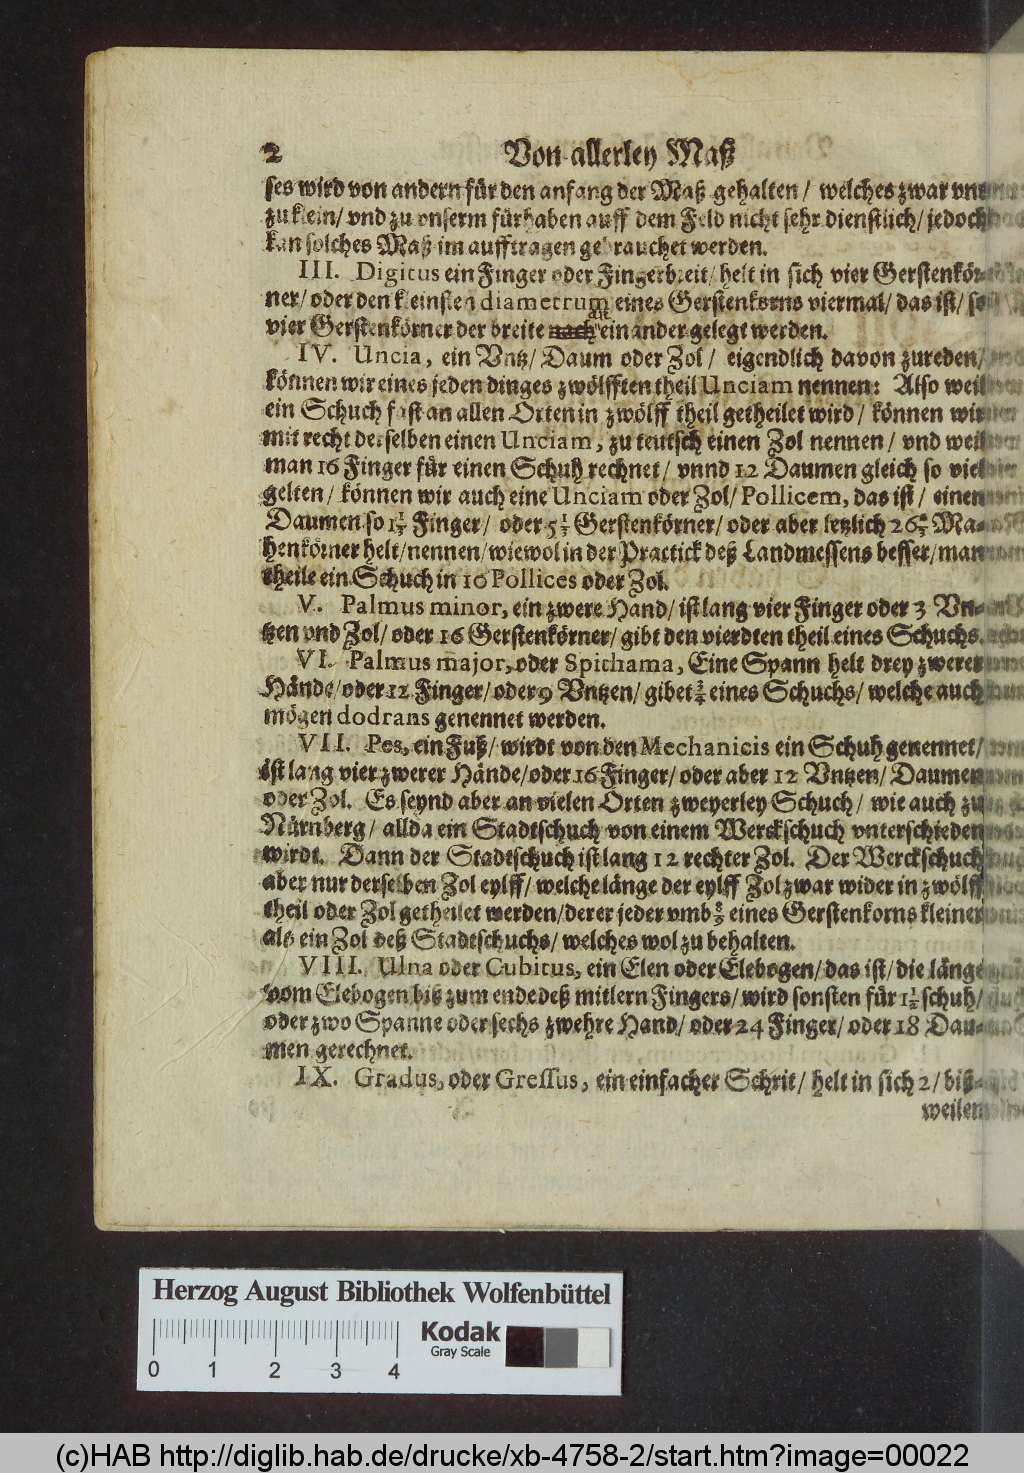 2 Von allerley Maß
ses wird von andern für den anfang der Maß gehalten / welches zwar vns
zu klein / vnd zu vnserm fürhaben auff dem Feld nicht sehr dienstlich / jedoch
kan solches Maß im aufftragen gebrauchet werden.
III. Digitus ein Finger oder Fingerbreit / helt in sich vier Gerstenkör-
ner / oder den kleinsten diametrum eines Gerstenkorns viermal / das ist / so
an
vier Gerstenkörner der breite nach einander gelegt werden.
IV. Uncia, ein Vntz / Daum oder Zol / eigendlich davon zureden /
können wir eines jeden dinges zwölfften theil Unciam nennen: Also weil
ein Schuch fast an allen Orten in zwölff theil getheilet wird / können wir
mit recht derselben einen Unciam, zu teutsch einen Zol nennen / vnd weil
man 16 Finger für einen Schuh rechnet / vnnd 12 Daumen gleich so viel
gelten / können wir auch eine Unciam oder Zol / Pollicem, das ist / einen
Daumen so 1⅓ Finger / oder 5⅓ Gerstenkörner / oder aber letzlich 26⅔ Ma-
henkörner helt / nennen / wiewol in der Practick deß Landmessens besser / man
theile ein Schuch in 10 Pollices oder Zol.
V. Palmus minor, ein zwere Hand / ist lang vier Finger oder 3 Vn-
tzen vnd Zol / oder 16 Gerstenkörner / gibt den vierdten theil eines Schuchs.
VI. Palmus major, oder Spithama, Eine Spann helt drey zwerer
Hände / oder 12 Finger / oder 9 Vntzen / gibet ¾ eines Schuchs / welche auch
mögen dodrans genennet werden.
VII. Pes, ein Fuß / wirdt von den Mechanicis ein Schuh genennet /
ist lang vier zwerer Hände / oder 16 Finger / oder aber 12 Vntzen / Daumen
oder Zol. Es seynd aber an vielen Orten zweyerley Schuch / wie auch zu
Nürnberg / allda ein Stadtschuch von einem Werckschuch vnterschieden
wirdt. Dann der Stadtschuch ist lang 12 rechter Zol. Der Werckschuch
aber nur derselben Zol eylff / welche länge der eylff Zol zwar wider in zwölff
theil oder Zol getheilet werden / derer jeder vmb eines Gerstenkorns kleiner
als ein Zol deß Stadtschuchs / welches wol zu behalten.
VIII. Ulna oder Cubitus, ein Elen oder Elebogen / das ist / die länge
vom Elebogen biß zum ende deß mitlern Fingers / wird sonsten für 1½ schuh /
oder zwo Spanne oder sechs zwehre Hand / oder 24 Finger / oder 18 Dau-
men gerechnet.
IX. Gradus, oder Gressus, ein einfacher Schrit / helt in sich 2 / biß-
weilen
Herzog August Bibliothek Wolfenbüttel
Kodak
Gray Scale
0 1 2 3 4
(c)HAB http://diglib.hab.de/drucke/xb-4758-2/start.htm?image=00022